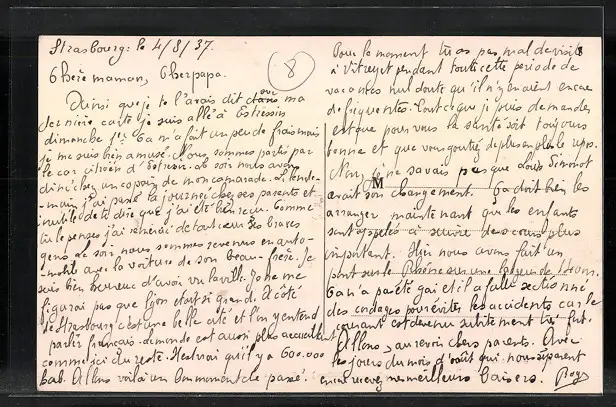 Strasbourg: le 4/8/37.
8
Chère maman, Cher papa.
Ainsi que je te l'avais dit dans ma
dernière carte je suis allé à
dimanche 1er Ca m'a fait un peu de frais mais
je me suis bien amusé. Nous sommes partis par
le car citroën d' Le soir nous avons
diné chez un copain de mon camarade. Le lende-
-main j'ai passé la journée chez ses parents et
inutile de te dire que j'ai été bien reçu. Comme
tu le penses j'ai remercié de tout coeur les braves
gens le soir nous sommes revenus en auto-
-mobile avec la voiture de son beau-frère. Je
suis bien heureux d'avoir vu la ville. Je ne me
figurais pas que Lyon était si grand. A côté
de Strasbourg c'est une belle cité et l'on y entend
parler français. le monde est aussi plus accueillant
comme ici du reste. Il est vrai qu'il y a 600.000
hab. Allons voilà un bon moment de passé.
Pour le moment tu as pas mal de visite
à Vitrey et pendant toute cette période de
vacances nul doute qu'il n'y en aient encore
de fréquentes. Tout ce que je puis demander
est que pour vous la santé soit toujours
bonne et que vous goutiez de plus en plus le repos.
Non je ne savais pas que Louis Simonot
avait son changement. Ça doit bien les
arranger maintenant que les enfants
sont appelés à suivre des cours plus
important. Hier nous avons fait un
pont sur le Rhône sur une largeur de 140m.
Ca n'a pas été gai et il a fallu sectionné
des cordages pour éviter les accidents car le
courant est devenu subitement très fort.
Allons, au revoir chers parents. Avec
les jours du mois d'août qui nous séparent
encore recevez mes meilleurs baisers. Roger
M